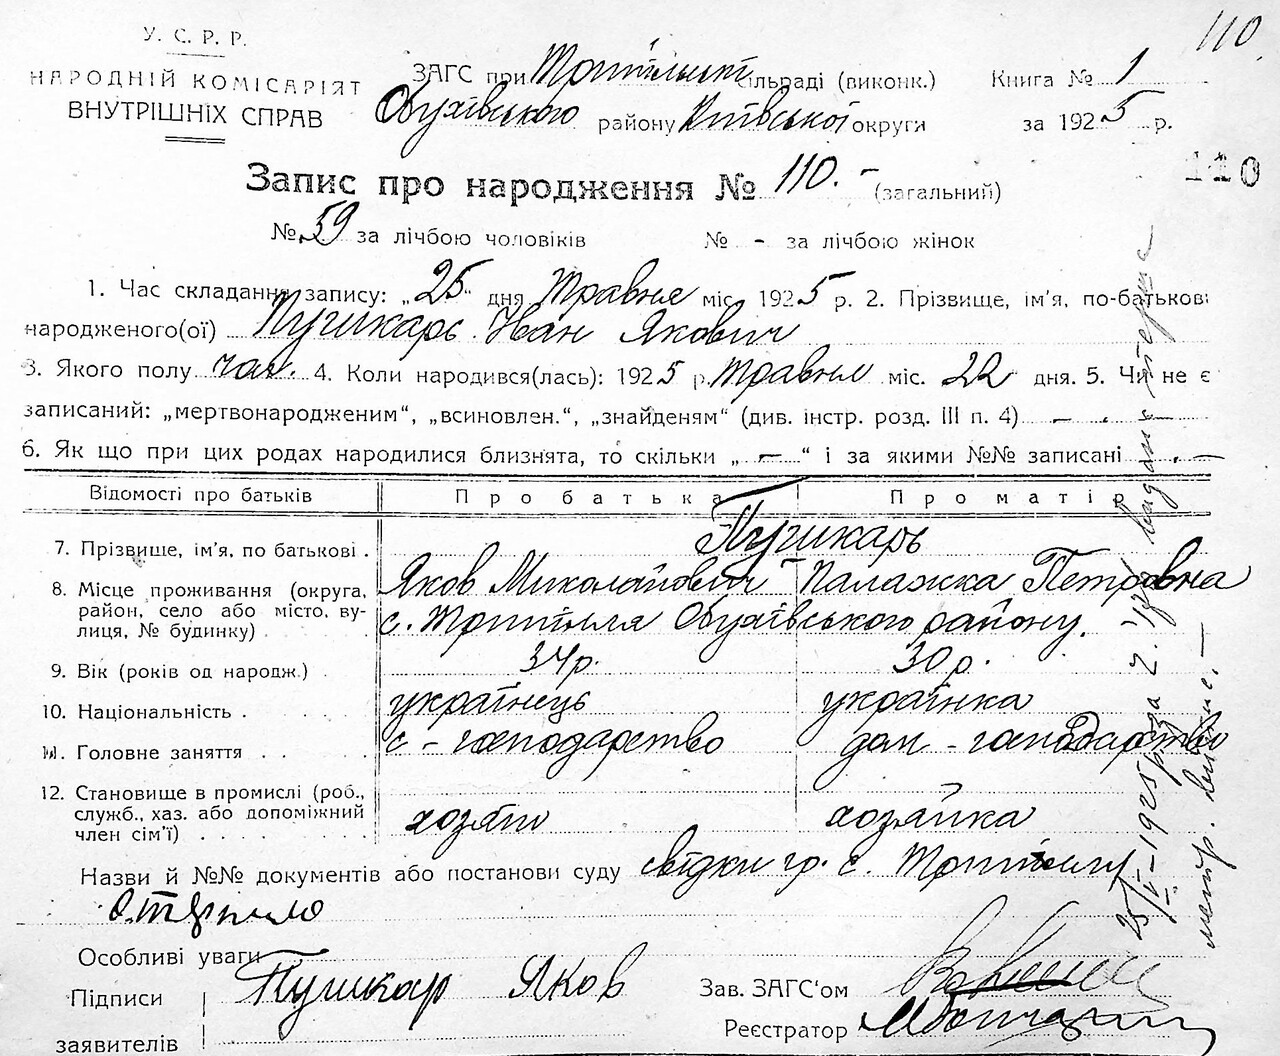 110
У. С. Р. Р.
НАРОДНІЙ КОМІСАРІЯТ
ВНУТРІШНІХ СПРАВ
ЗАГС при Трипільск сільраді (виконк.)
Обухівського району Київської округи
Книга № 1
за 1925 р.
110
Запис про народження № 110. - (загальний)
№ 59 за лічбою чоловіків № - за лічбою жінок
1. Час складання запису: „25" дня Травня міс. 1925 р. 2. Прізвище, ім'я, по-батькові
народженого(ої) Пушкарь Іван Якович
3. Якого полу чол. 4. Коли народився(лась): 1925 р. травня міс. 22 дня. 5. Чи не є
записаний: „мертвонародженим“, „всиновлен.“, „знайденям“ (див. інстр. розд. III п. 4) — . —
6. Як що при цих родах народилися близнята, то скільки „ — “ і за якими №№ записані . —
Відомості про батьків Про батька Про матір
7. Прізвище, ім'я, по батькові . Пушкарь
Яков Миколайович Палажка Петровна
8. Місце проживання (округа, район, село або місто, вулиця, № будинку) с. Трипілля Обухівського району.
9. Вік (років од народж.) . 34р. 30 р.
10. Національність . українець українка
11. Головне заняття . . с - господарство дом - господарство
12. Становище в промислі (роб., служб., хаз. або допоміжний член сім'ї) хозяїн хозяйка
Назви й №№ документів або постанови суду свідки гр. с. Трипілля
Особливі уваги
Підписи заявителів Пушкар Яков
Зав. ЗАГС'ом
Реєстратор
25/V-1925 р. за № видана
метр. випис. —